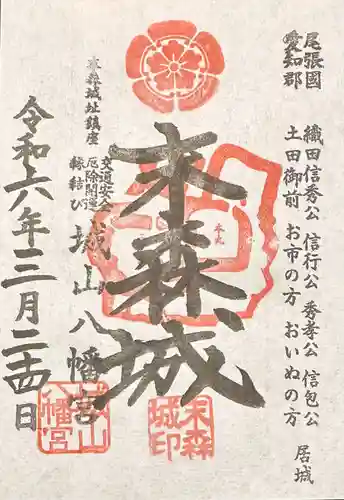 尾張國
愛知郡
織田信秀公 信行公 秀孝公 信包公
土田御前 お市の方 おいぬの方
居城
末森城
本丸
末森城印
末森城址鎮座
交通安全
厄除開運
縁結び
城山八幡宮
城山八幡宮
令和六年三月二十四日